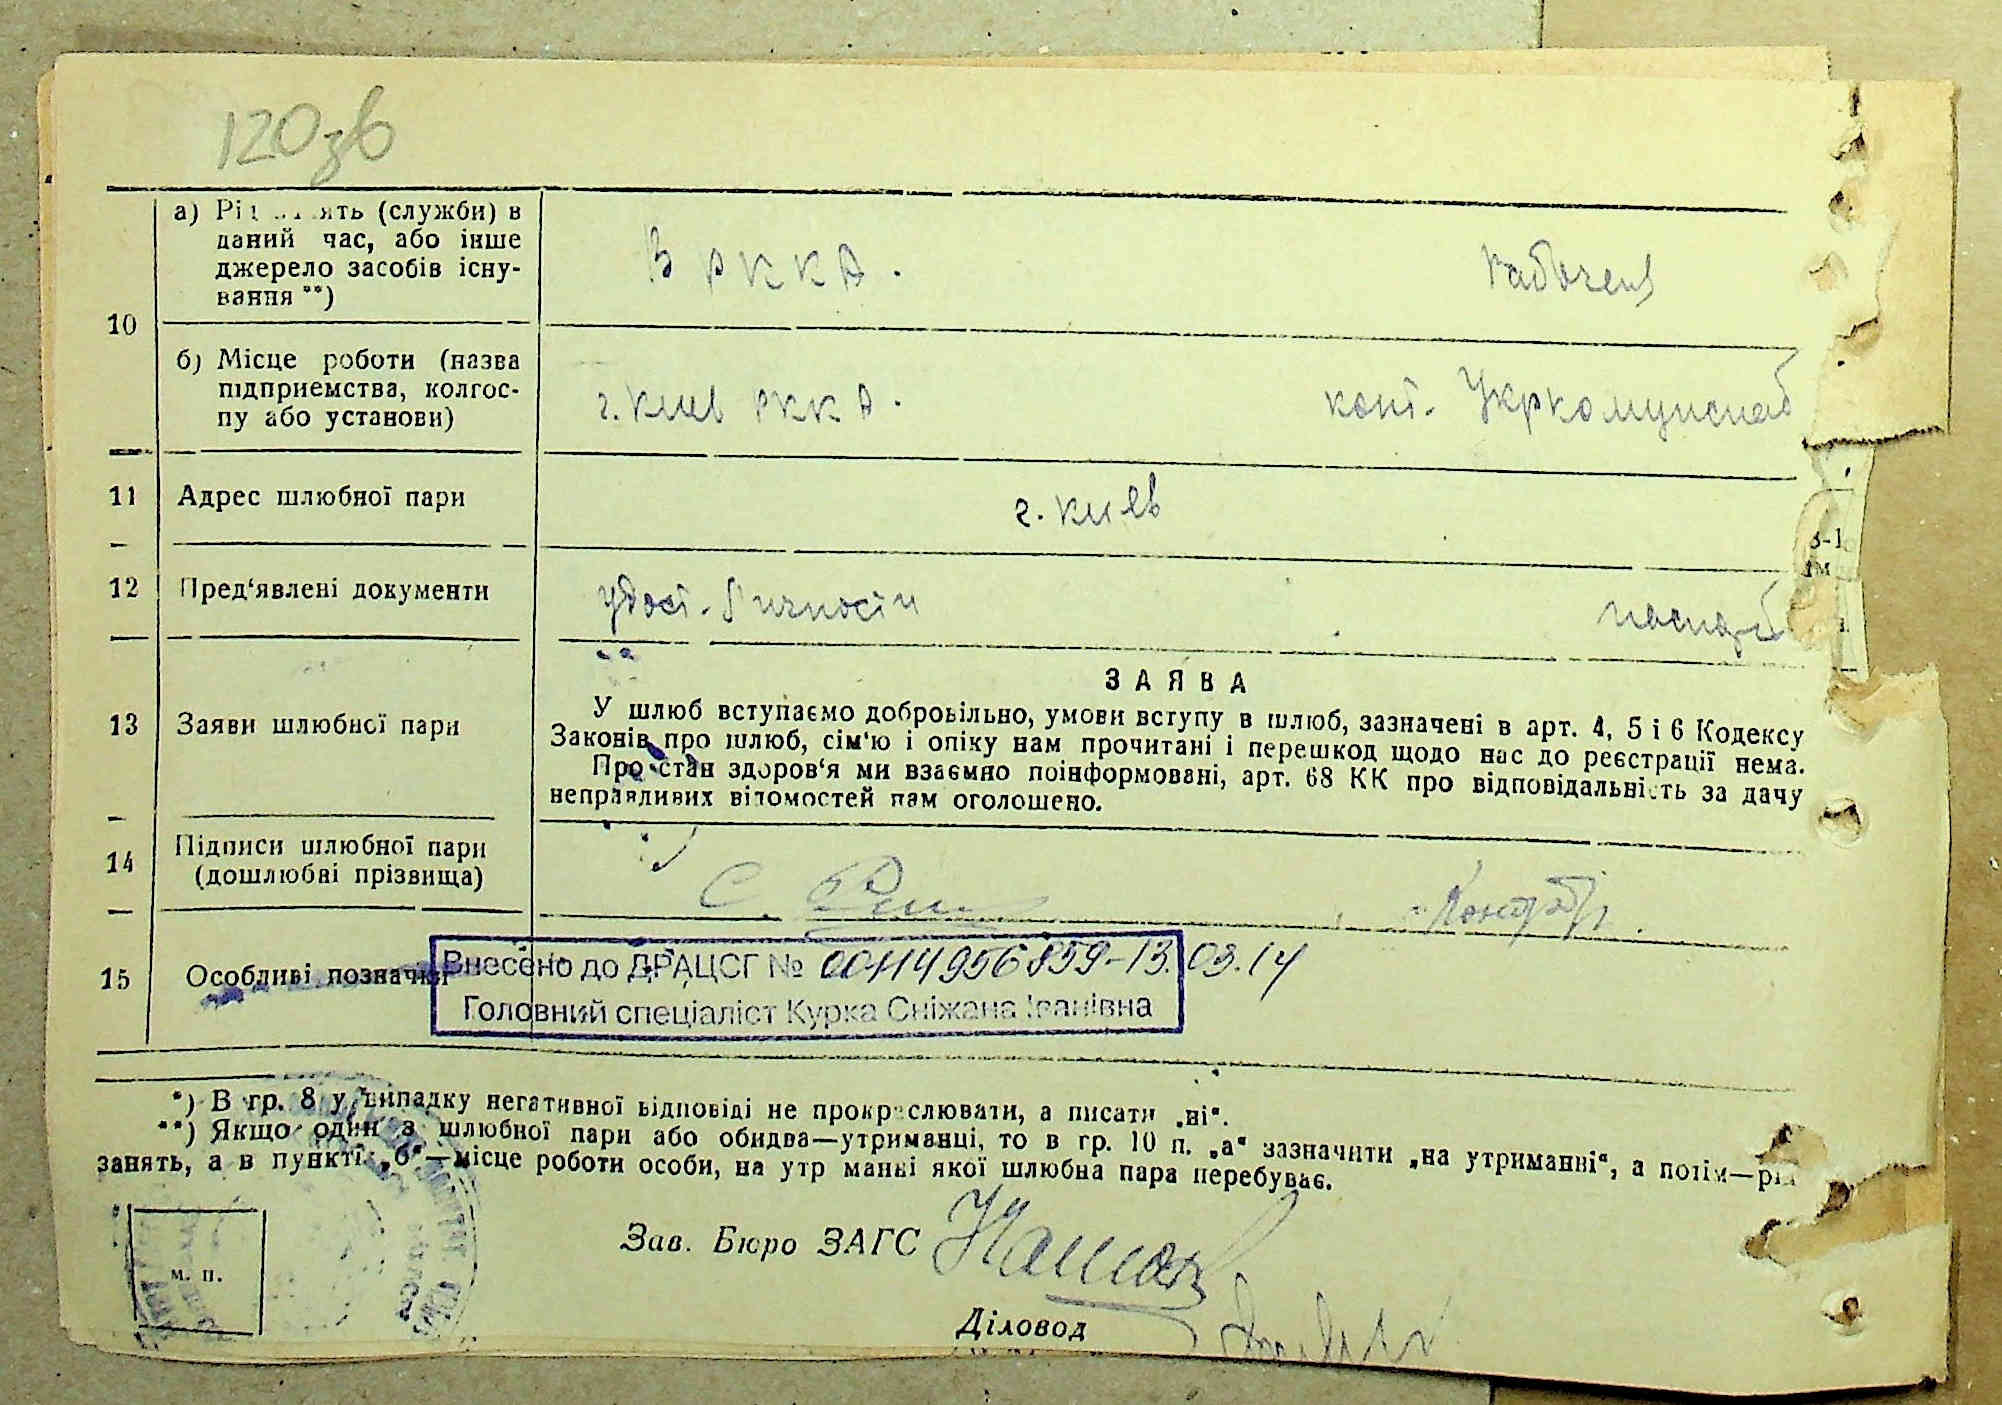 120зв
а) Рі ять (служби) в
даний час, або інше
джерело засобів існу-
вання **)
В РККА.
рабочий
10
б) Місце роботи (назва
підприемства, колгос-
пу або установи)
г. Киев РККА.
конт. Укркомунснаб
11 Адрес шлюбної пари
г. Киев
12 Пред‘явлені документи
удост. личности
паспорт
13 Заяви шлюбної пари
ЗАЯВА
У шлюб вступаємо добровільно, умови вступу в шлюб, зазначені в арт. 4, 5 і 6 Кодексу
Законів про шлюб, сім‘ю і опіку нам прочитані і перешкод щодо нас до реєстрації нема.
Про стан здоров‘я ми взаємно поінформовані, арт. 68 КК про відповідальність за дачу
неправдивих відомостей нам оголошено.
14 Підписи шлюбної пари
(дошлюбні прізвища)
С.
15 Особливі позначки
Внесено до ДРАЦСГ № 00114956859-13.03.14
Головний спеціаліст Курка Сніжана Іванівна
*) В гр. 8 у випадку негативної відповіді не прокреслювати, а писати „ні“.
**) Якщо один з шлюбної пари або обидва—утриманці, то в гр. 10 п. „а“ зазначити „на утриманні“, а потім—рід
занять, а в пункті „б“—місце роботи особи, на утриманні якої шлюбна пара перебуває.
м. п.
Зав. Бюро ЗАГС
Діловод